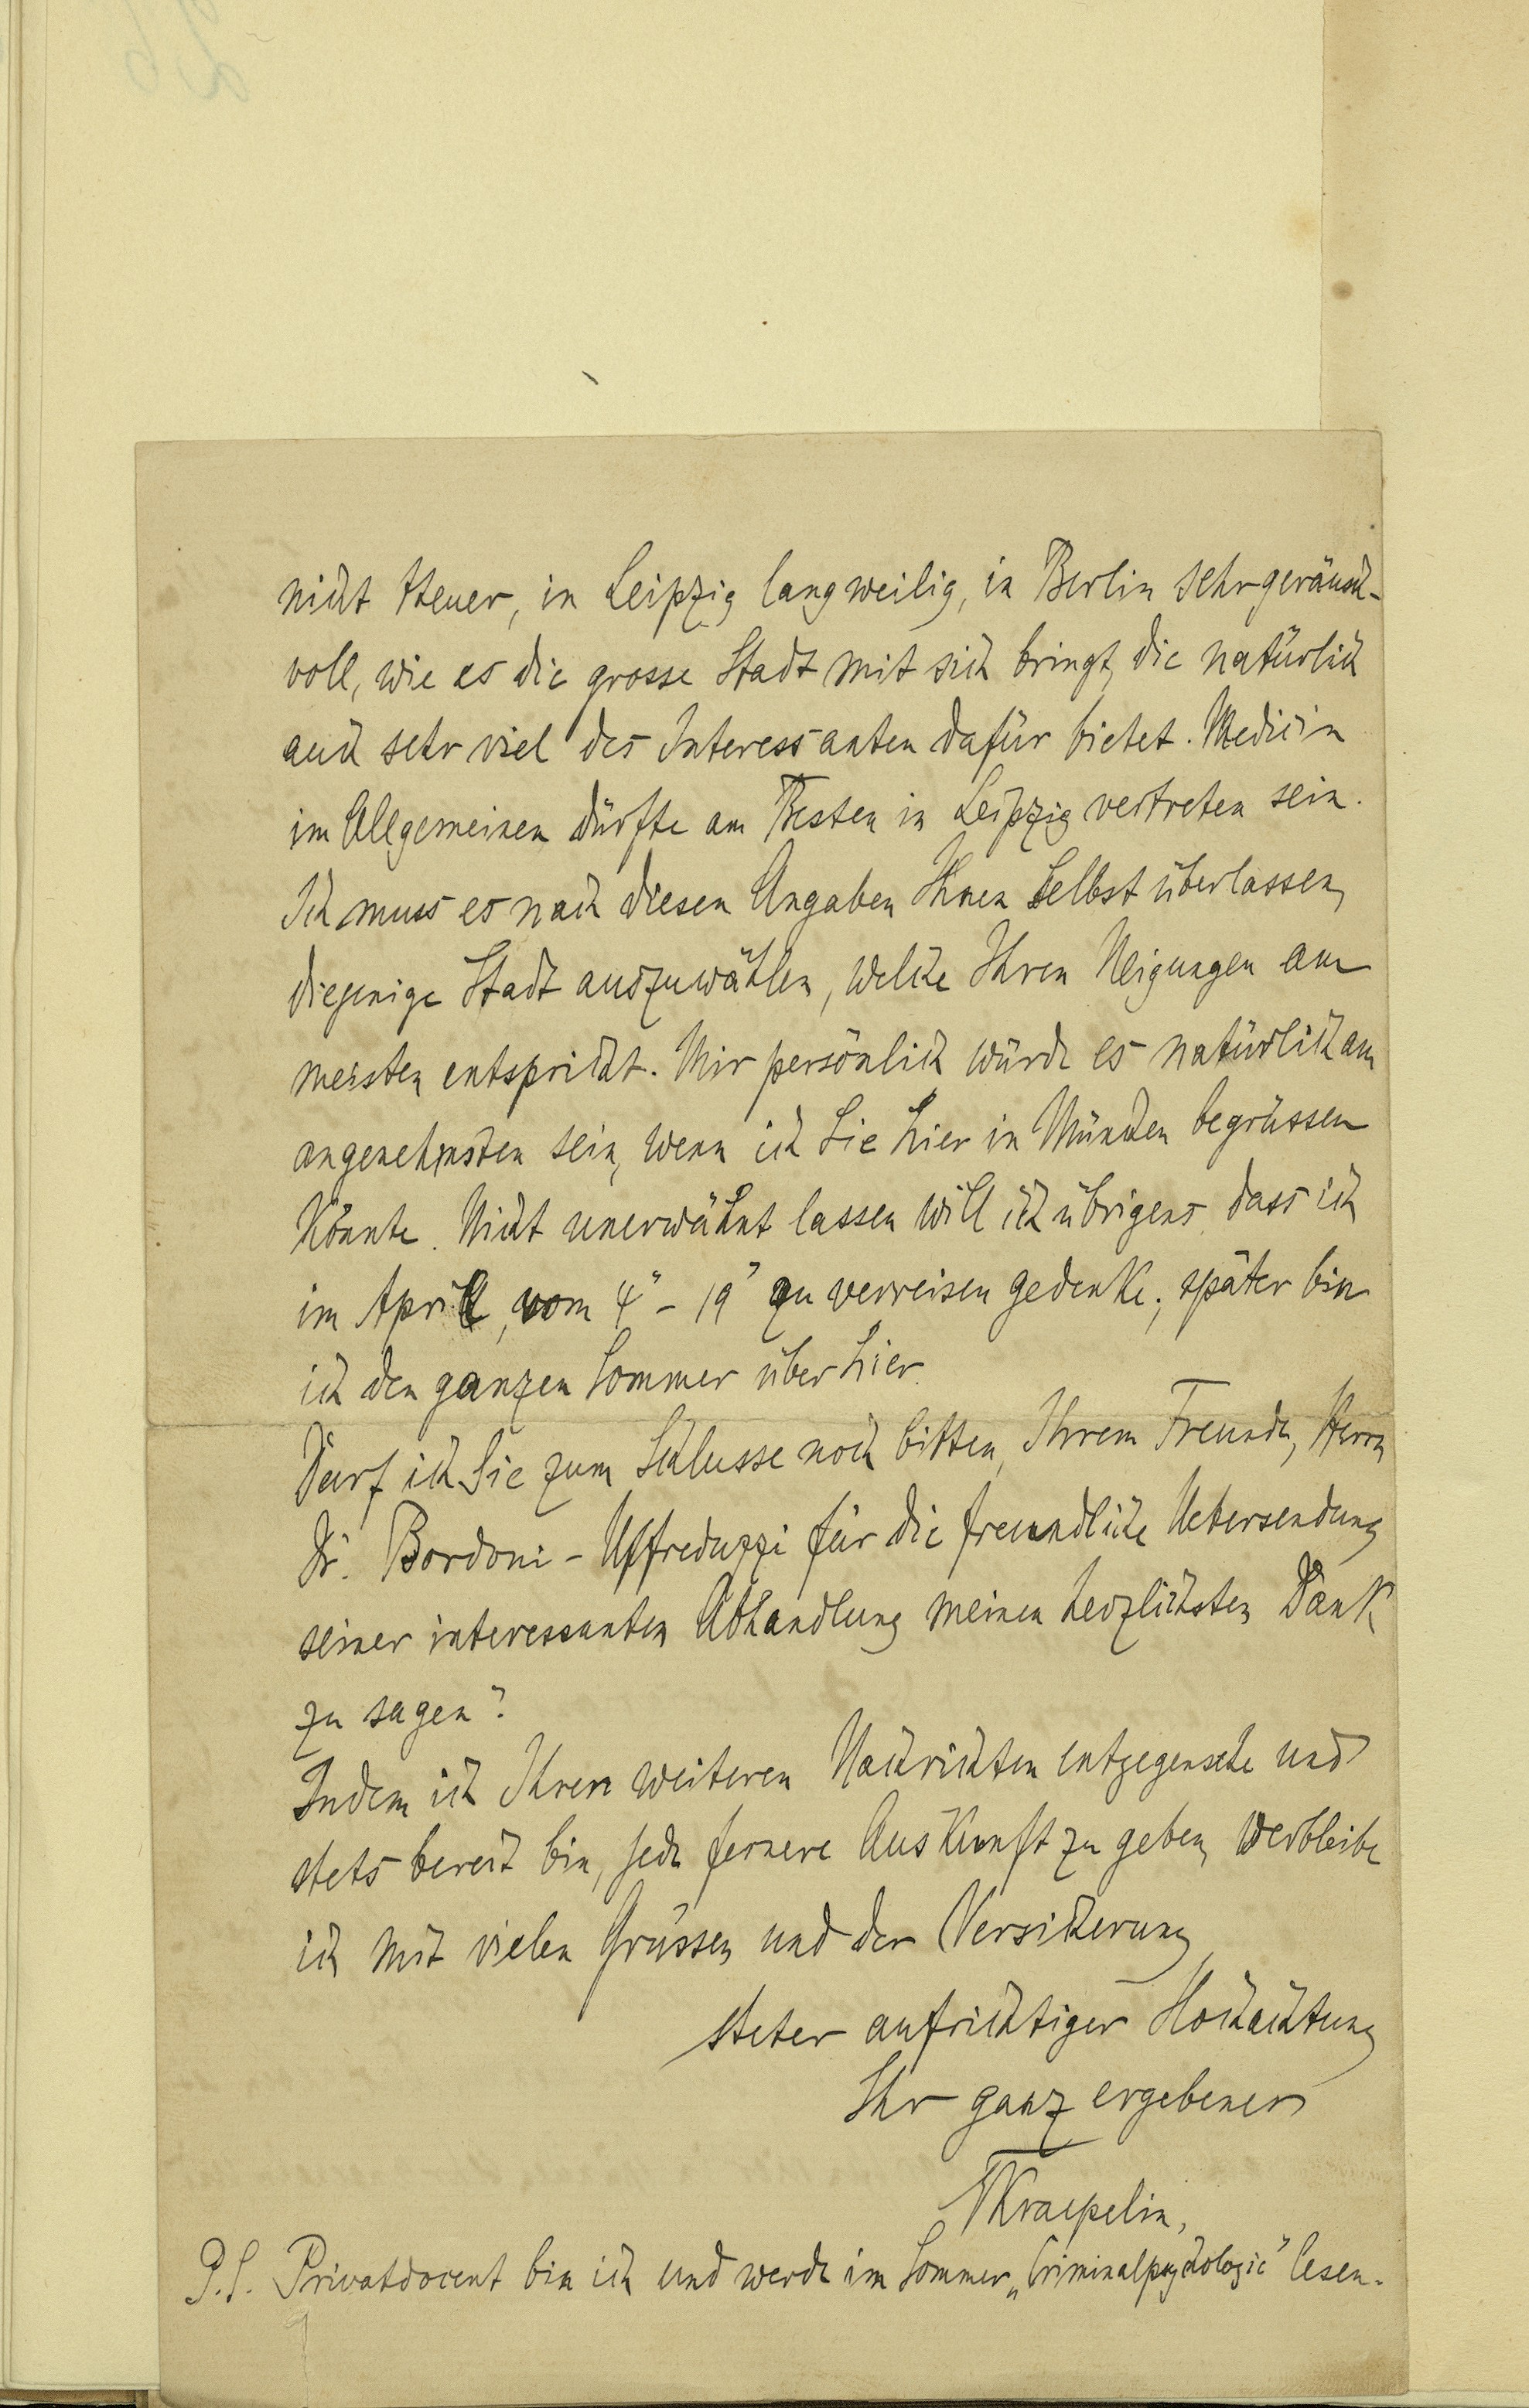 nicht theuer, in Leipzig langweilig, in Berlin sehr geräusch-
voll, wie es die grosse Stadt mit sich bringt, die natürlich
auch sehr viel des Interessanten dafür bietet. Medicin
im Allgemeinen dürfte am Besten in Leipzig vertreten sein.
Ich muss es nach diesen Angaben Ihnen selbst überlassen,
diejenige Stadt auszuwählen, welche Ihren Neigungen am
meisten entspricht. Mir persönlich würde es natürlich am
angenehmsten sein, wenn ich Sie hier in München begrüssen
könnte. Nicht unerwähnt lassen will ich übrigens, dass ich
im April, vom 4" - 19" zu verreisen gedenke; später bin
ich den ganzen Sommer über hier.
Darf ich Sie zum Schlusse noch bitten, Ihrem Freunde, Herrn
Dr. Bordoni-Uffreduzzi für die freundliche Uebersendung
seiner interessanten Abhandlung meinen herzlichsten Dank
zu sagen?
Indem ich Ihren weiteren Nachrichten entgegensehe und
stets bereit bin, jede fernere Auskunft zu geben, verbleibe
ich mit vielen Grüssen und der Versicherung
steter aufrichtiger Hochachtung
Ihr ganz ergebener
Kraepelin.
P.S. Privatdocent bin ich und werde im Sommer „Criminalpsychologie" lesen.